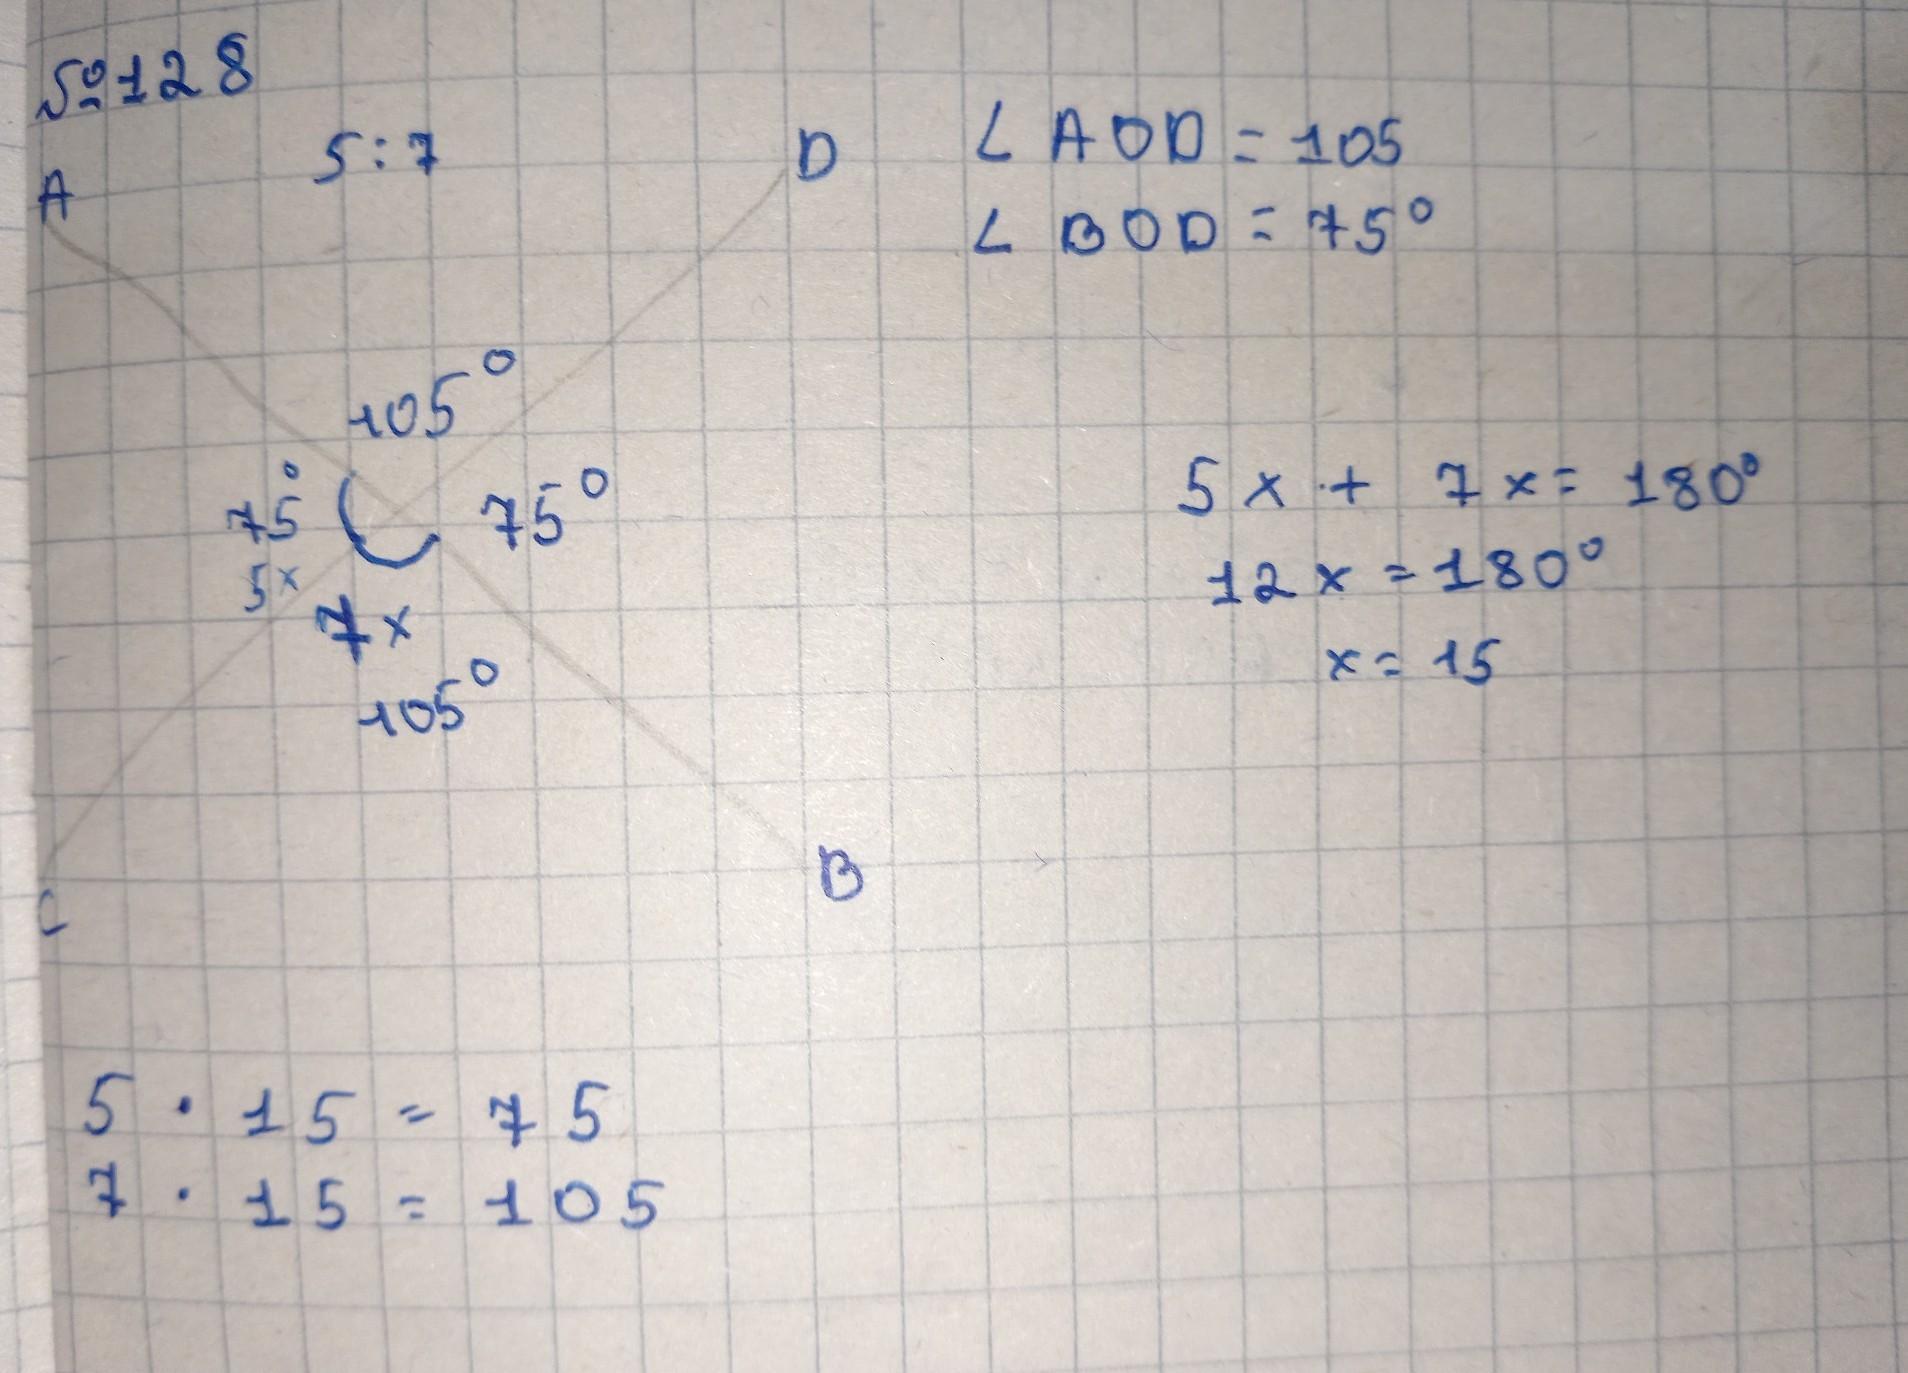 №128
5:7
A
D
∠AOD = 105
∠BOD = 75°
105°
75°
75°
5x
7x
105°
5x + 7x = 180°
12x = 180°
x = 15
B
C
5 · 15 = 75
7 · 15 = 105